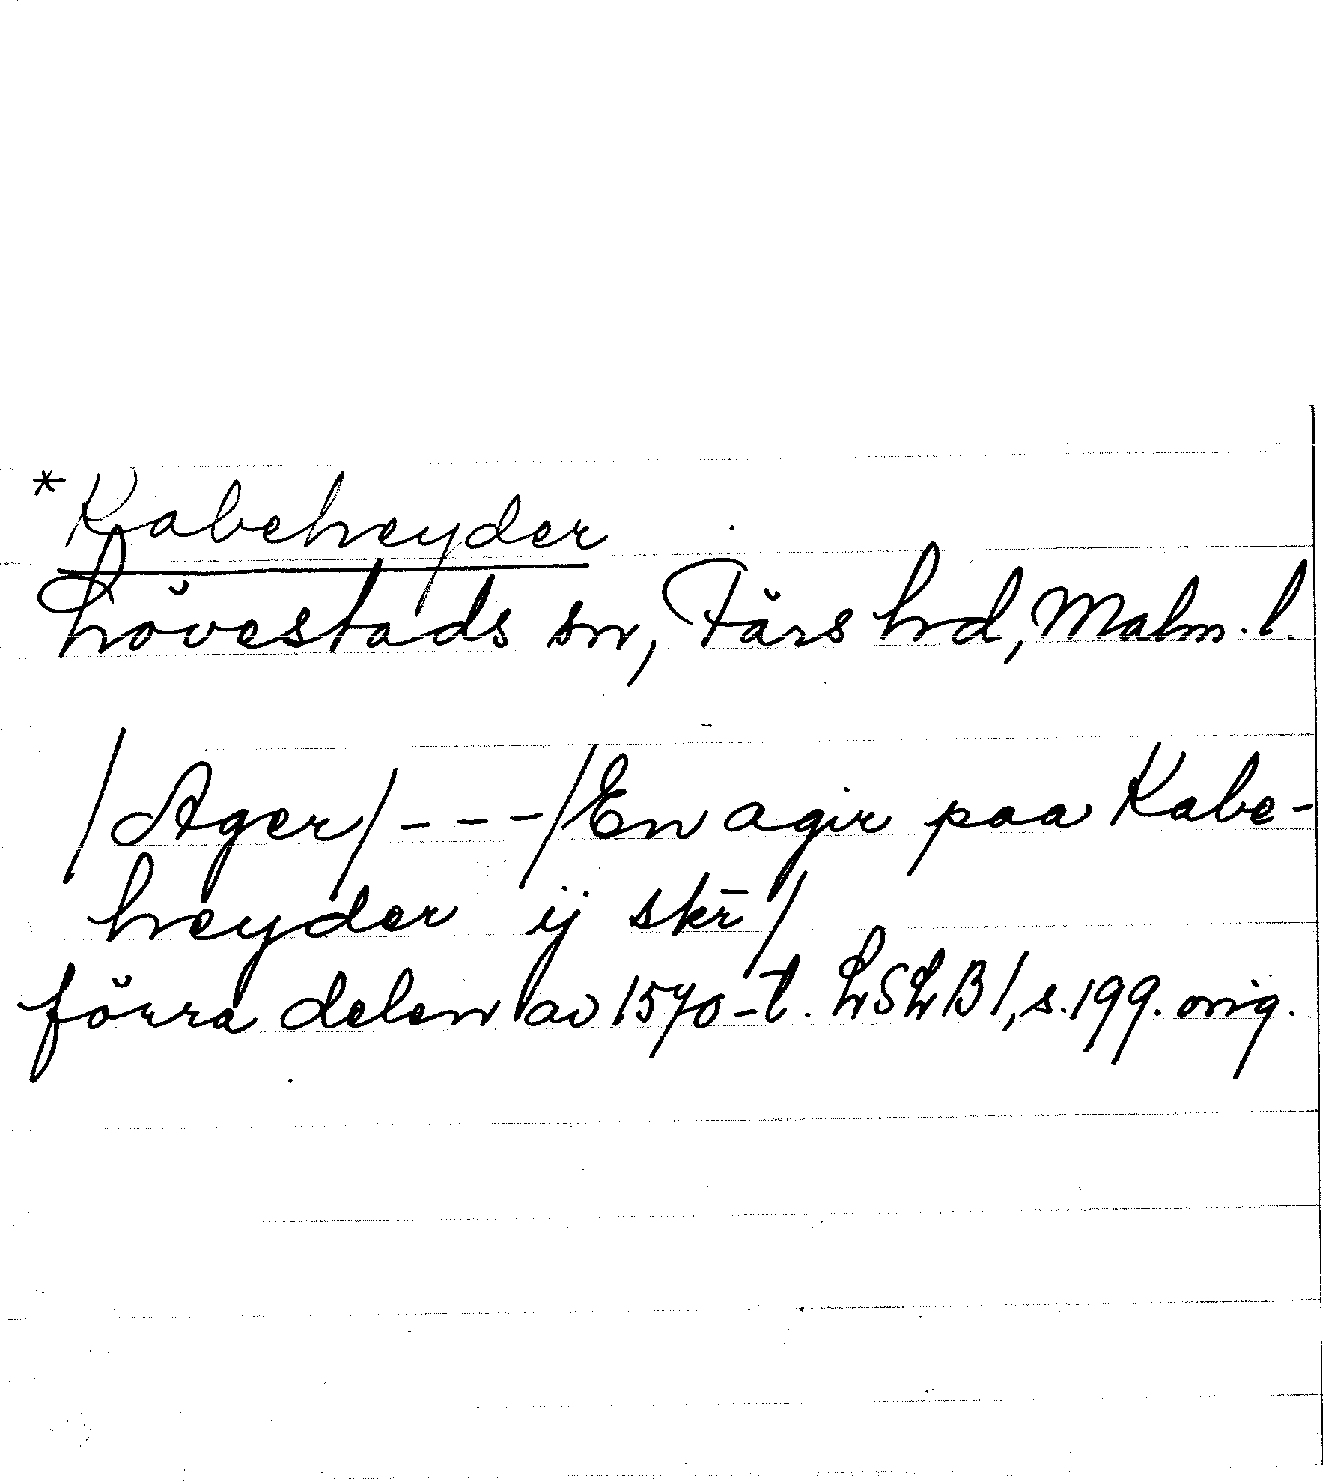 *Kabeheyder
Lövestads sn, Färs hd, Malm. l.
/Ager/ - - - /En agir paa Kabe-
heyder ij skr̄/
förra delen av 1570-t. LSLB 1, s. 199. orig.